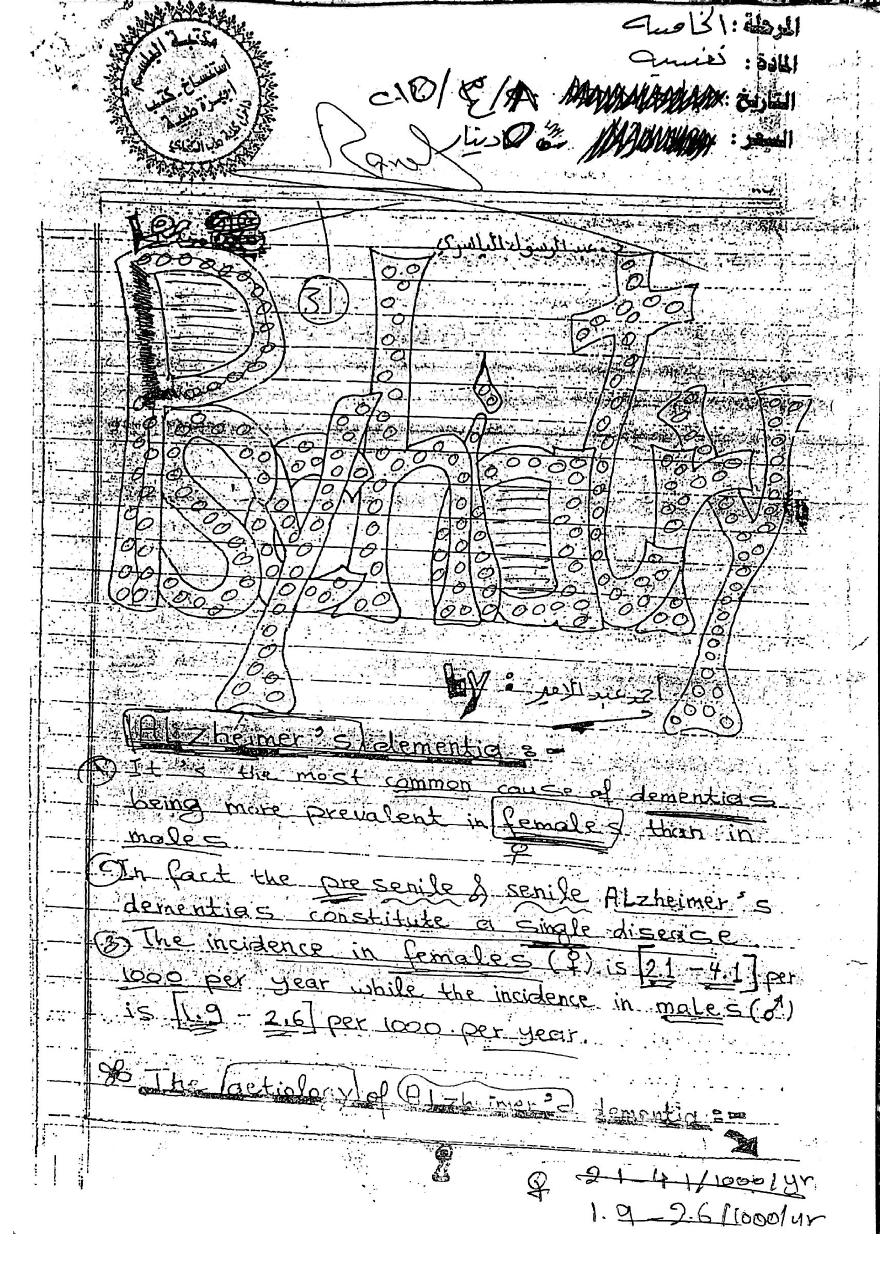 مكتبة البلسم
استنساخ . كتب
اجهزة طبية
المرحلة : الخامسة
المادة : نفسية
التاريخ :
السعر : دينار
Ranef
31
by : احمد عبد الامير
Alzheimer's dementia :-
① It's the most common cause of dementias
being more prevalent in females than in
♀
males
② In fact the presenile & senile ALzheimer's
dementias constitute a single disease
③ The incidence in females (♀) is [2.1 - 4.1] per
1000 per year while the incidence in males (♂)
is [1.9 - 2.6] per 1000 per year.
The aetiology of Alzheimer's dementia :-
♀ 2.1-4.1/1000/yr
1.9-2.6/1000/yr